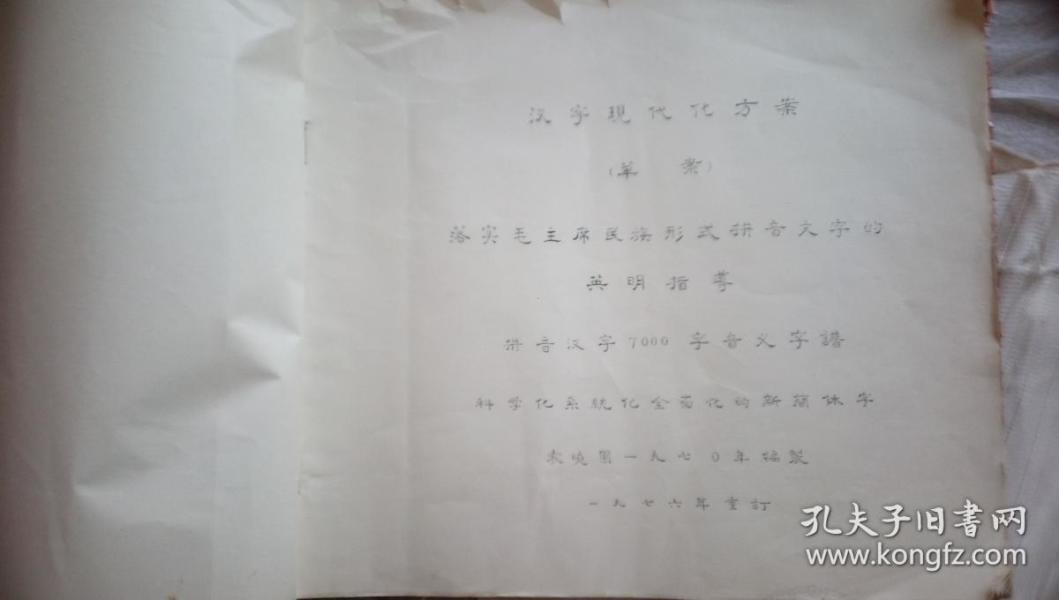 汉字現代化方案
(草案)
落实毛主席民族形式拼音文字的
英明指导
拼音汉字7000字音义字譜
科学化系統化全面化的新簡体字
袁曉園一九七0年编製
一九七六年重訂
孔夫子旧書网
www.kongfz.com